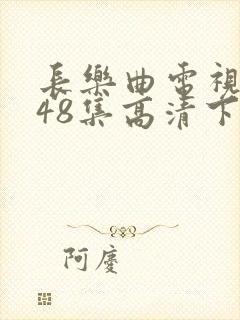 長樂曲電視
48集高清下
阿慶